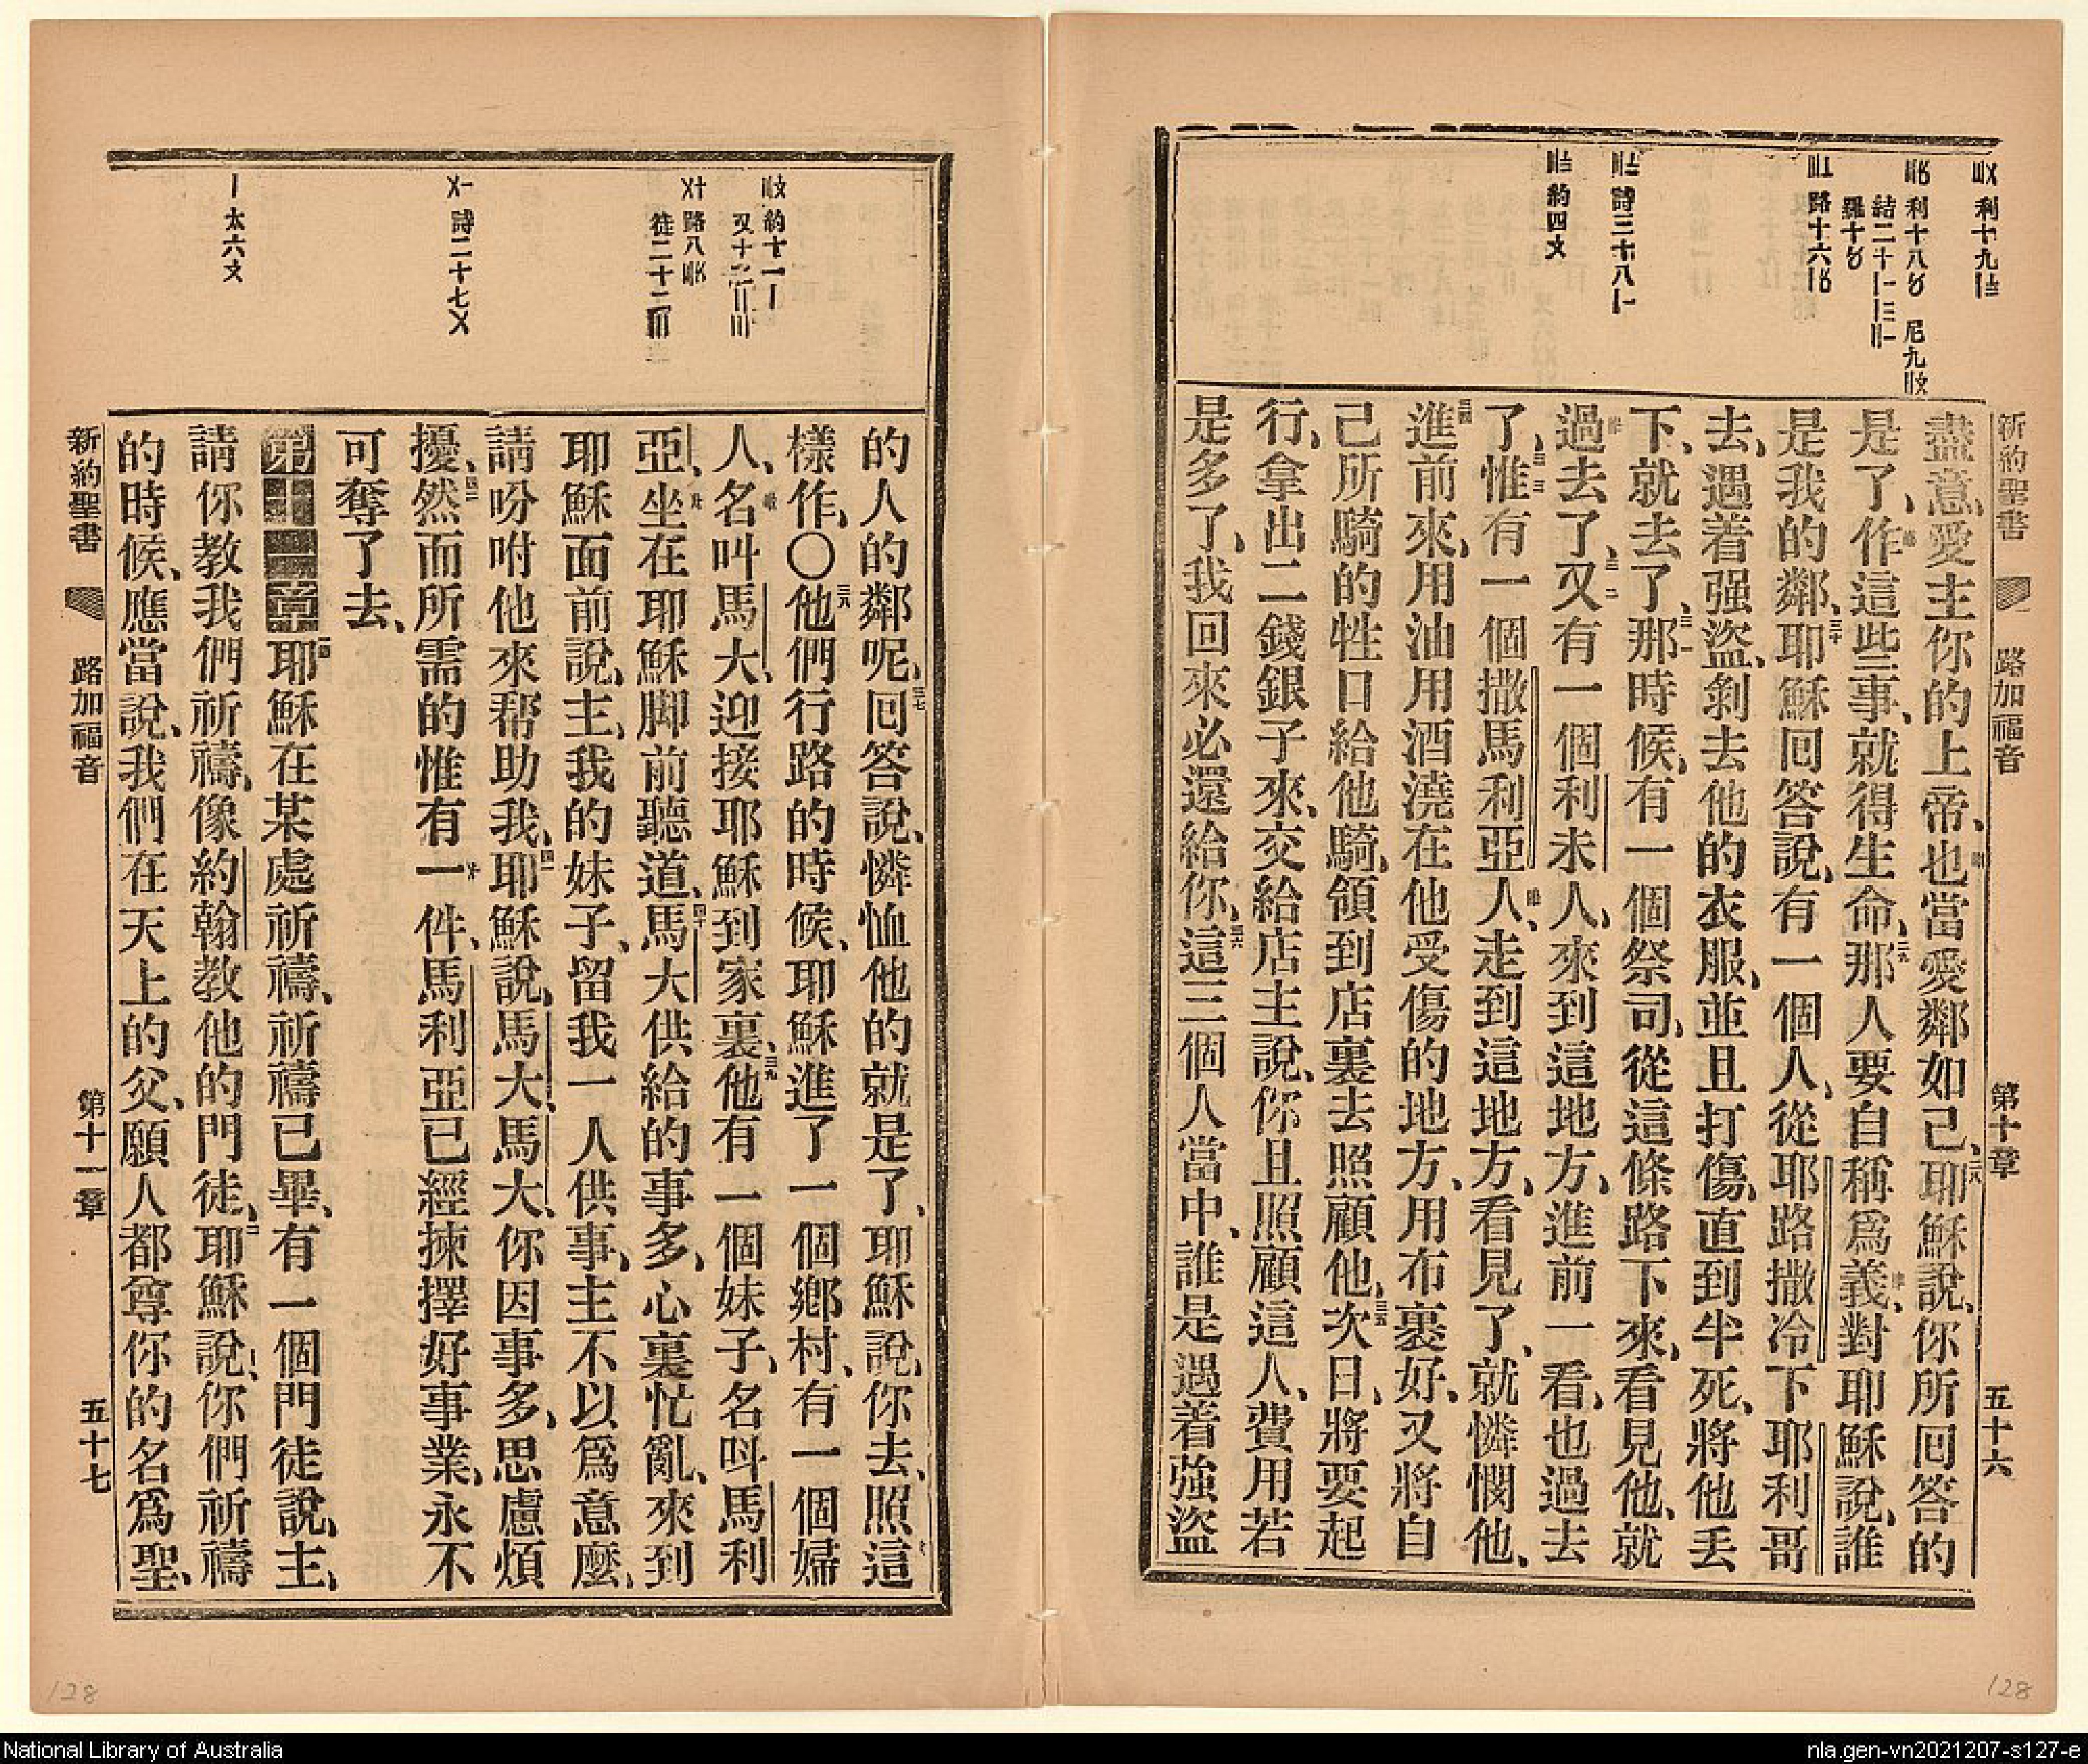 新約聖書 路加福音 第十章 五十六
利十九
利十八 尼九
結二十
羅十
路十六
詩三十八
約四
盡意、愛主你的上帝、也當愛鄰如己、二八耶穌說、你所回答的
是了、作這些事、就得生命、二九那人要自稱爲義、對耶穌說、誰
是我的鄰、三十耶穌回答說、有一個人、從耶路撒冷下耶利哥
去、遇着强盜、剝去他的衣服、並且打傷、直到半死、將他丟
下、就去了、三一那時候、有一個祭司、從這條路下來、看見他、就
過去了、三二又有一個利未人、來到這地方、進前一看、也過去
了、三三惟有一個撒馬利亞人、走到這地方、看見了、就憐憫他、
三四進前來、用油用酒澆在他受傷的地方、用布裹好、又將自
己所騎的牲口給他騎、領到店裏去照顧他、三五次日、將要起
行、拿出二錢銀子來、交給店主說、你且照顧這人、費用若
是多了、我回來必還給你、三六這三個人當中、誰是遇着強盜
約十一
又十二
路八
徒二十二
詩二十七
太六
的人的鄰呢、三七回答說、憐恤他的就是了、耶穌說、你去、照這
樣作、〇三八他們行路的時候、耶穌進了一個鄉村、有一個婦
人、名叫馬大、迎接耶穌到家裏、三九他有一個妹子、名呌馬利
亞、坐在耶穌脚前聽道、四十馬大供給的事多、心裏忙亂、來到
耶穌面前說、主、我的妹子、留我一人供事、主不以爲意麼、
請吩咐他來帮助我、四一耶穌說、馬大、馬大、你因事多、思慮煩
擾、四二然而所需的惟有一件、馬利亞已經揀擇好事業、永不
可奪了去、
第十一章一耶穌在某處祈禱、祈禱已畢、有一個門徒說、主、
請你教我們祈禱、像約翰教他的門徒、二耶穌說、你們祈禱
的時候、應當說、我們在天上的父、願人都尊你的名爲聖、
新約聖書 路加福音 第十一章 五十七
128
128
National Library of Australia
nla.gen-vn2021207-s127-e